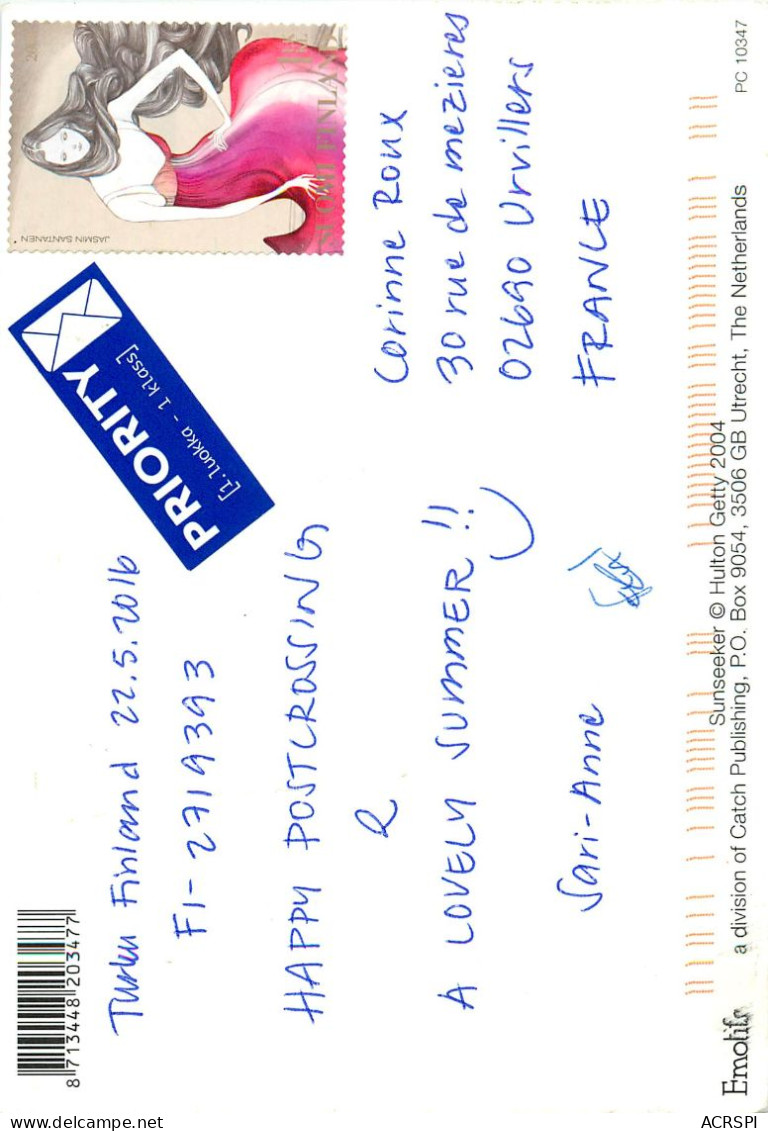 Turku Finland 22.5.2016
FI-2719393
HAPPY POSTCROSSING
&
A LOVELY SUMMER!!
Sari-Anne
PRIORITY
[1. luokka - 1 klass]
JASMIN SANTANEN
SUOMI FINLAND
Corinne Roux
30 rue de mezieres
02690 Urvillers
FRANCE
8 713448 203477
Emotifs
Sunseeker © Hulton Getty 2004
a division of Catch Publishing, P.O. Box 9054, 3506 GB Utrecht, The Netherlands
PC 10347
ACRSPI